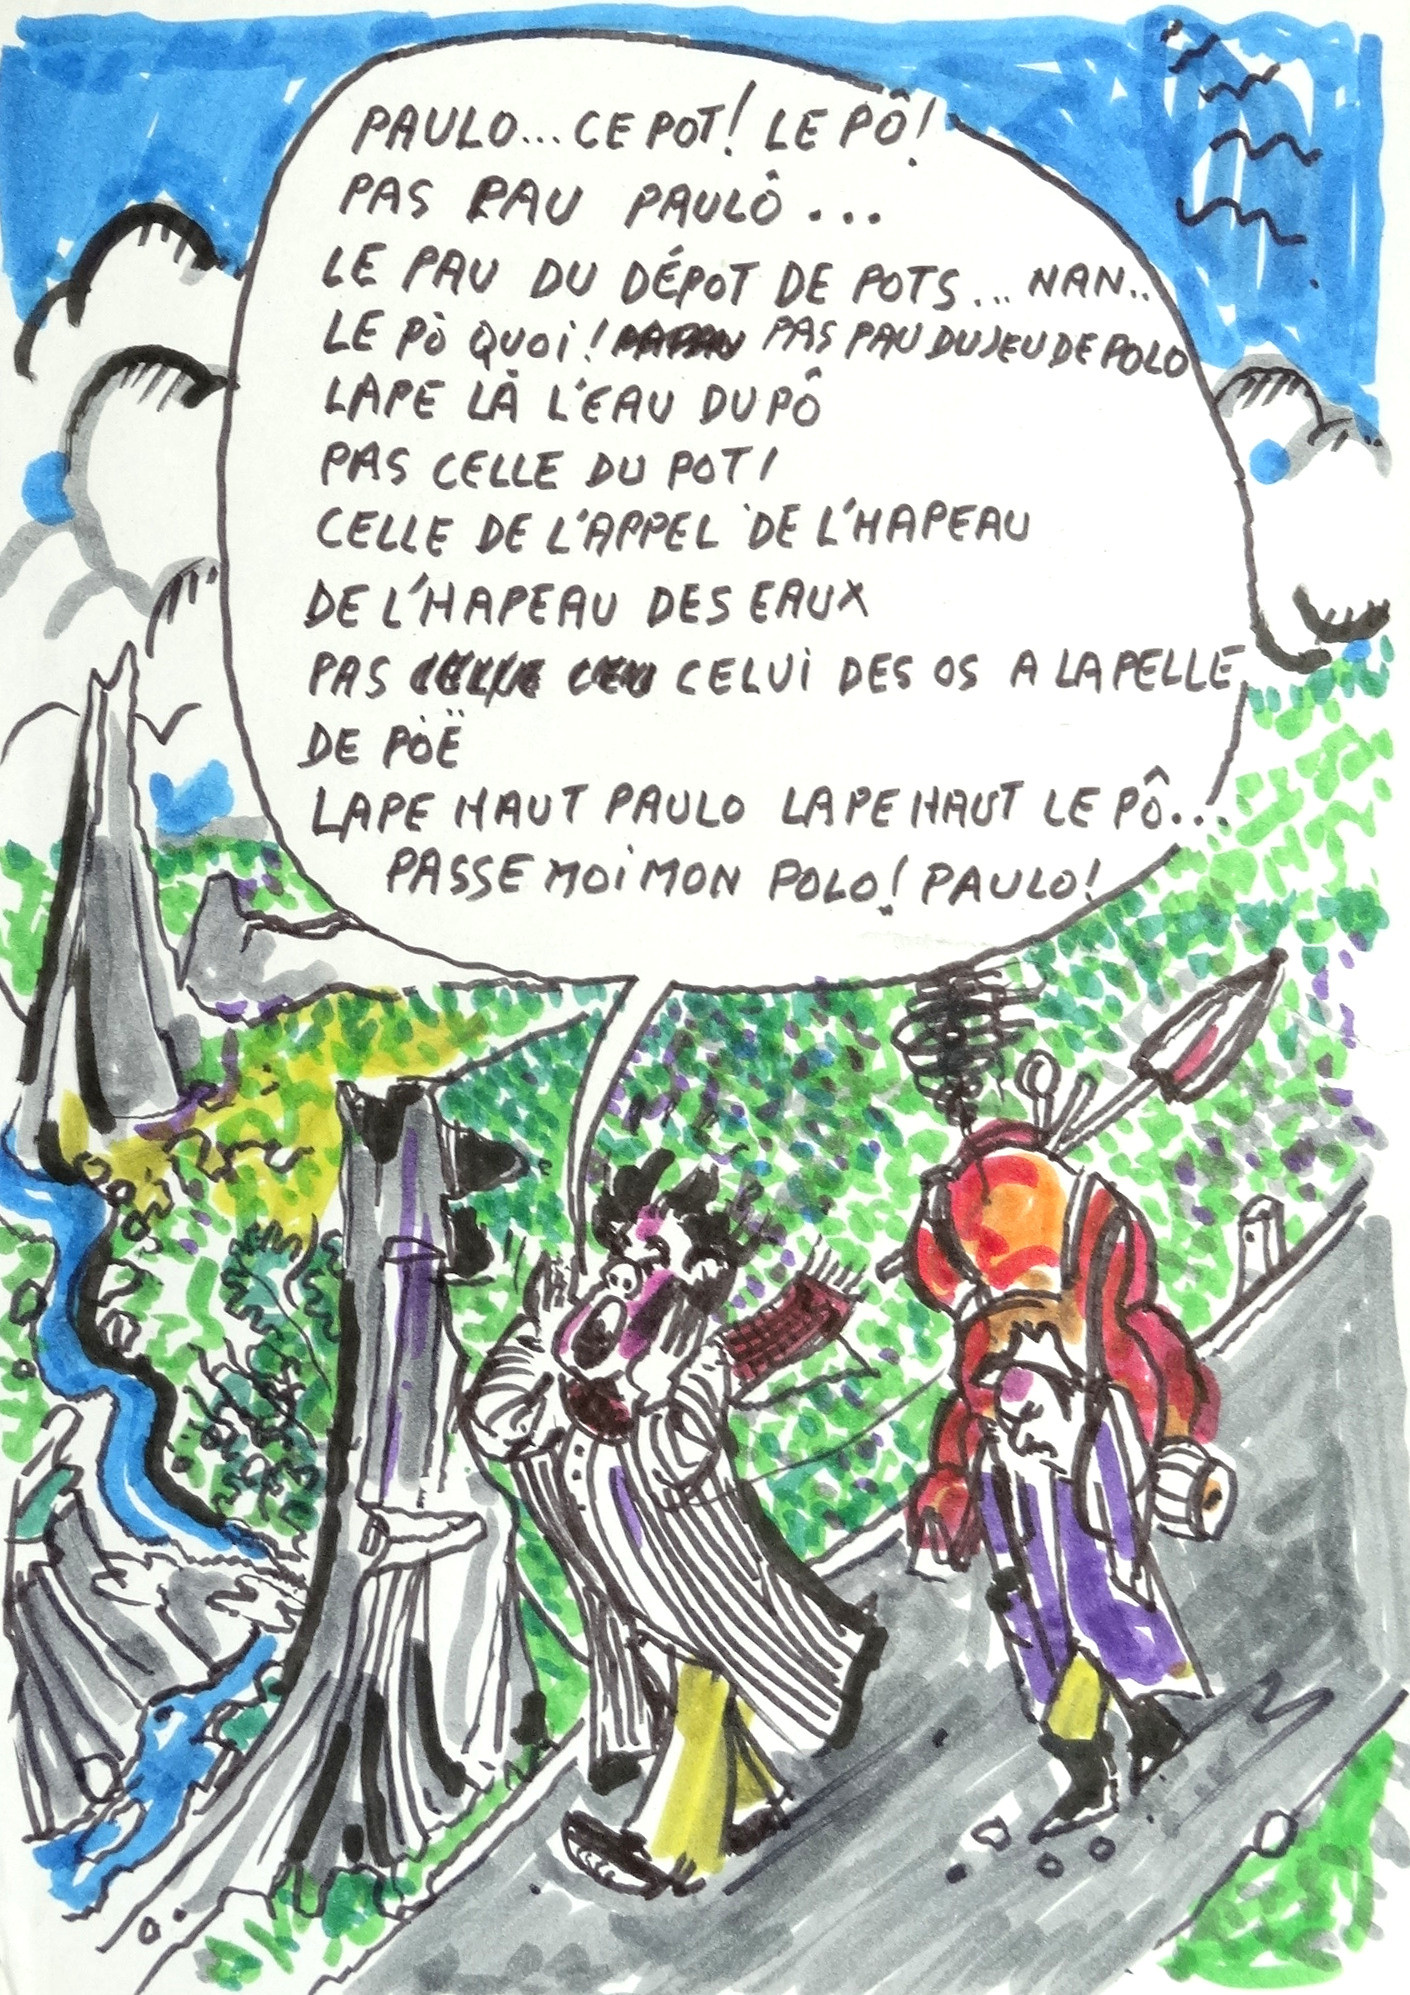 PAULO... CE POT! LE PÔ!
PAS PAU PAULÔ...
LE PAU DU DÉPOT DE POTS... NAN..
LE PÒ QUOI! PAS PAU DU JEU DE POLO
LAPE LÀ L'EAU DU PÔ
PAS CELLE DU POT!
CELLE DE L'APPEL DE L'HAPEAU
DE L'HAPEAU DES EAUX
PAS CELUI DES OS A LA PELLE
DE PÒË
LAPE HAUT PAULO LAPE HAUT LE PÔ...
PASSE MOI MON POLO! PAULO!